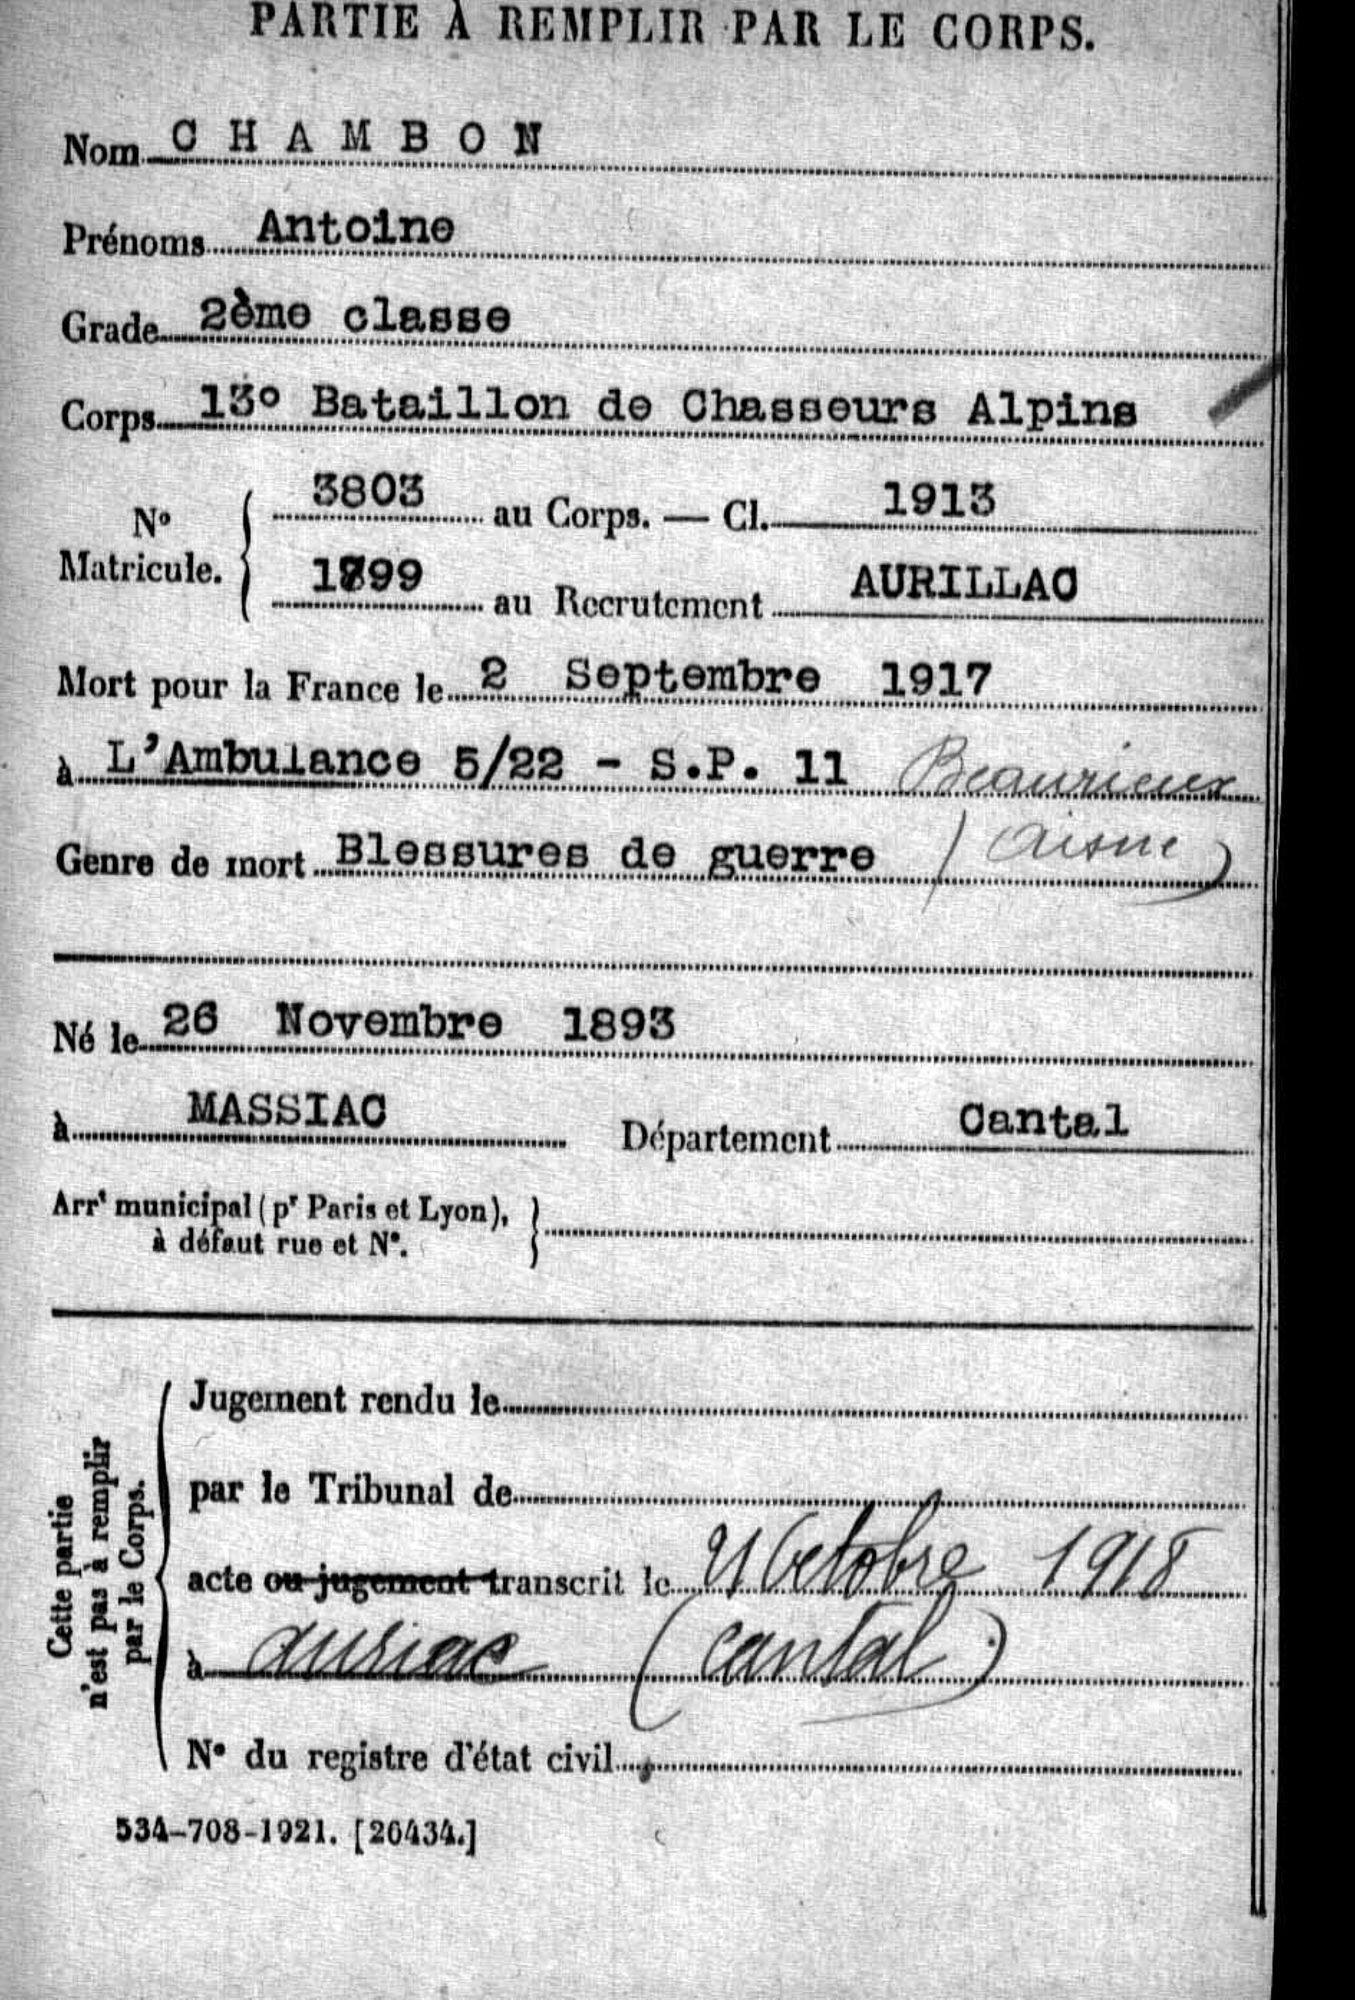 PARTIE À REMPLIR PAR LE CORPS.
Nom CHAMBON
Prénoms Antoine
Grade 2ème classe
Corps 13° Bataillon de Chasseurs Alpins
N° Matricule. { 3803 au Corps. — Cl. 1913
1899 au Recrutement AURILLAC
Mort pour la France le 2 Septembre 1917
à L'Ambulance 5/22 - S.P. 11 Beaurieux
Genre de mort Blessures de guerre (Aisne)
Né le 26 Novembre 1893
à MASSIAC Département Cantal
Arrt municipal (pr Paris et Lyon), }
à défaut rue et N°.
Cette partie
n'est pas à remplir
par le Corps.
Jugement rendu le
par le Tribunal de
acte ou jugement transcrit le 21 Octobre 1918
à Auriac (Cantal)
N° du registre d'état civil
534-708-1921. [26434.]